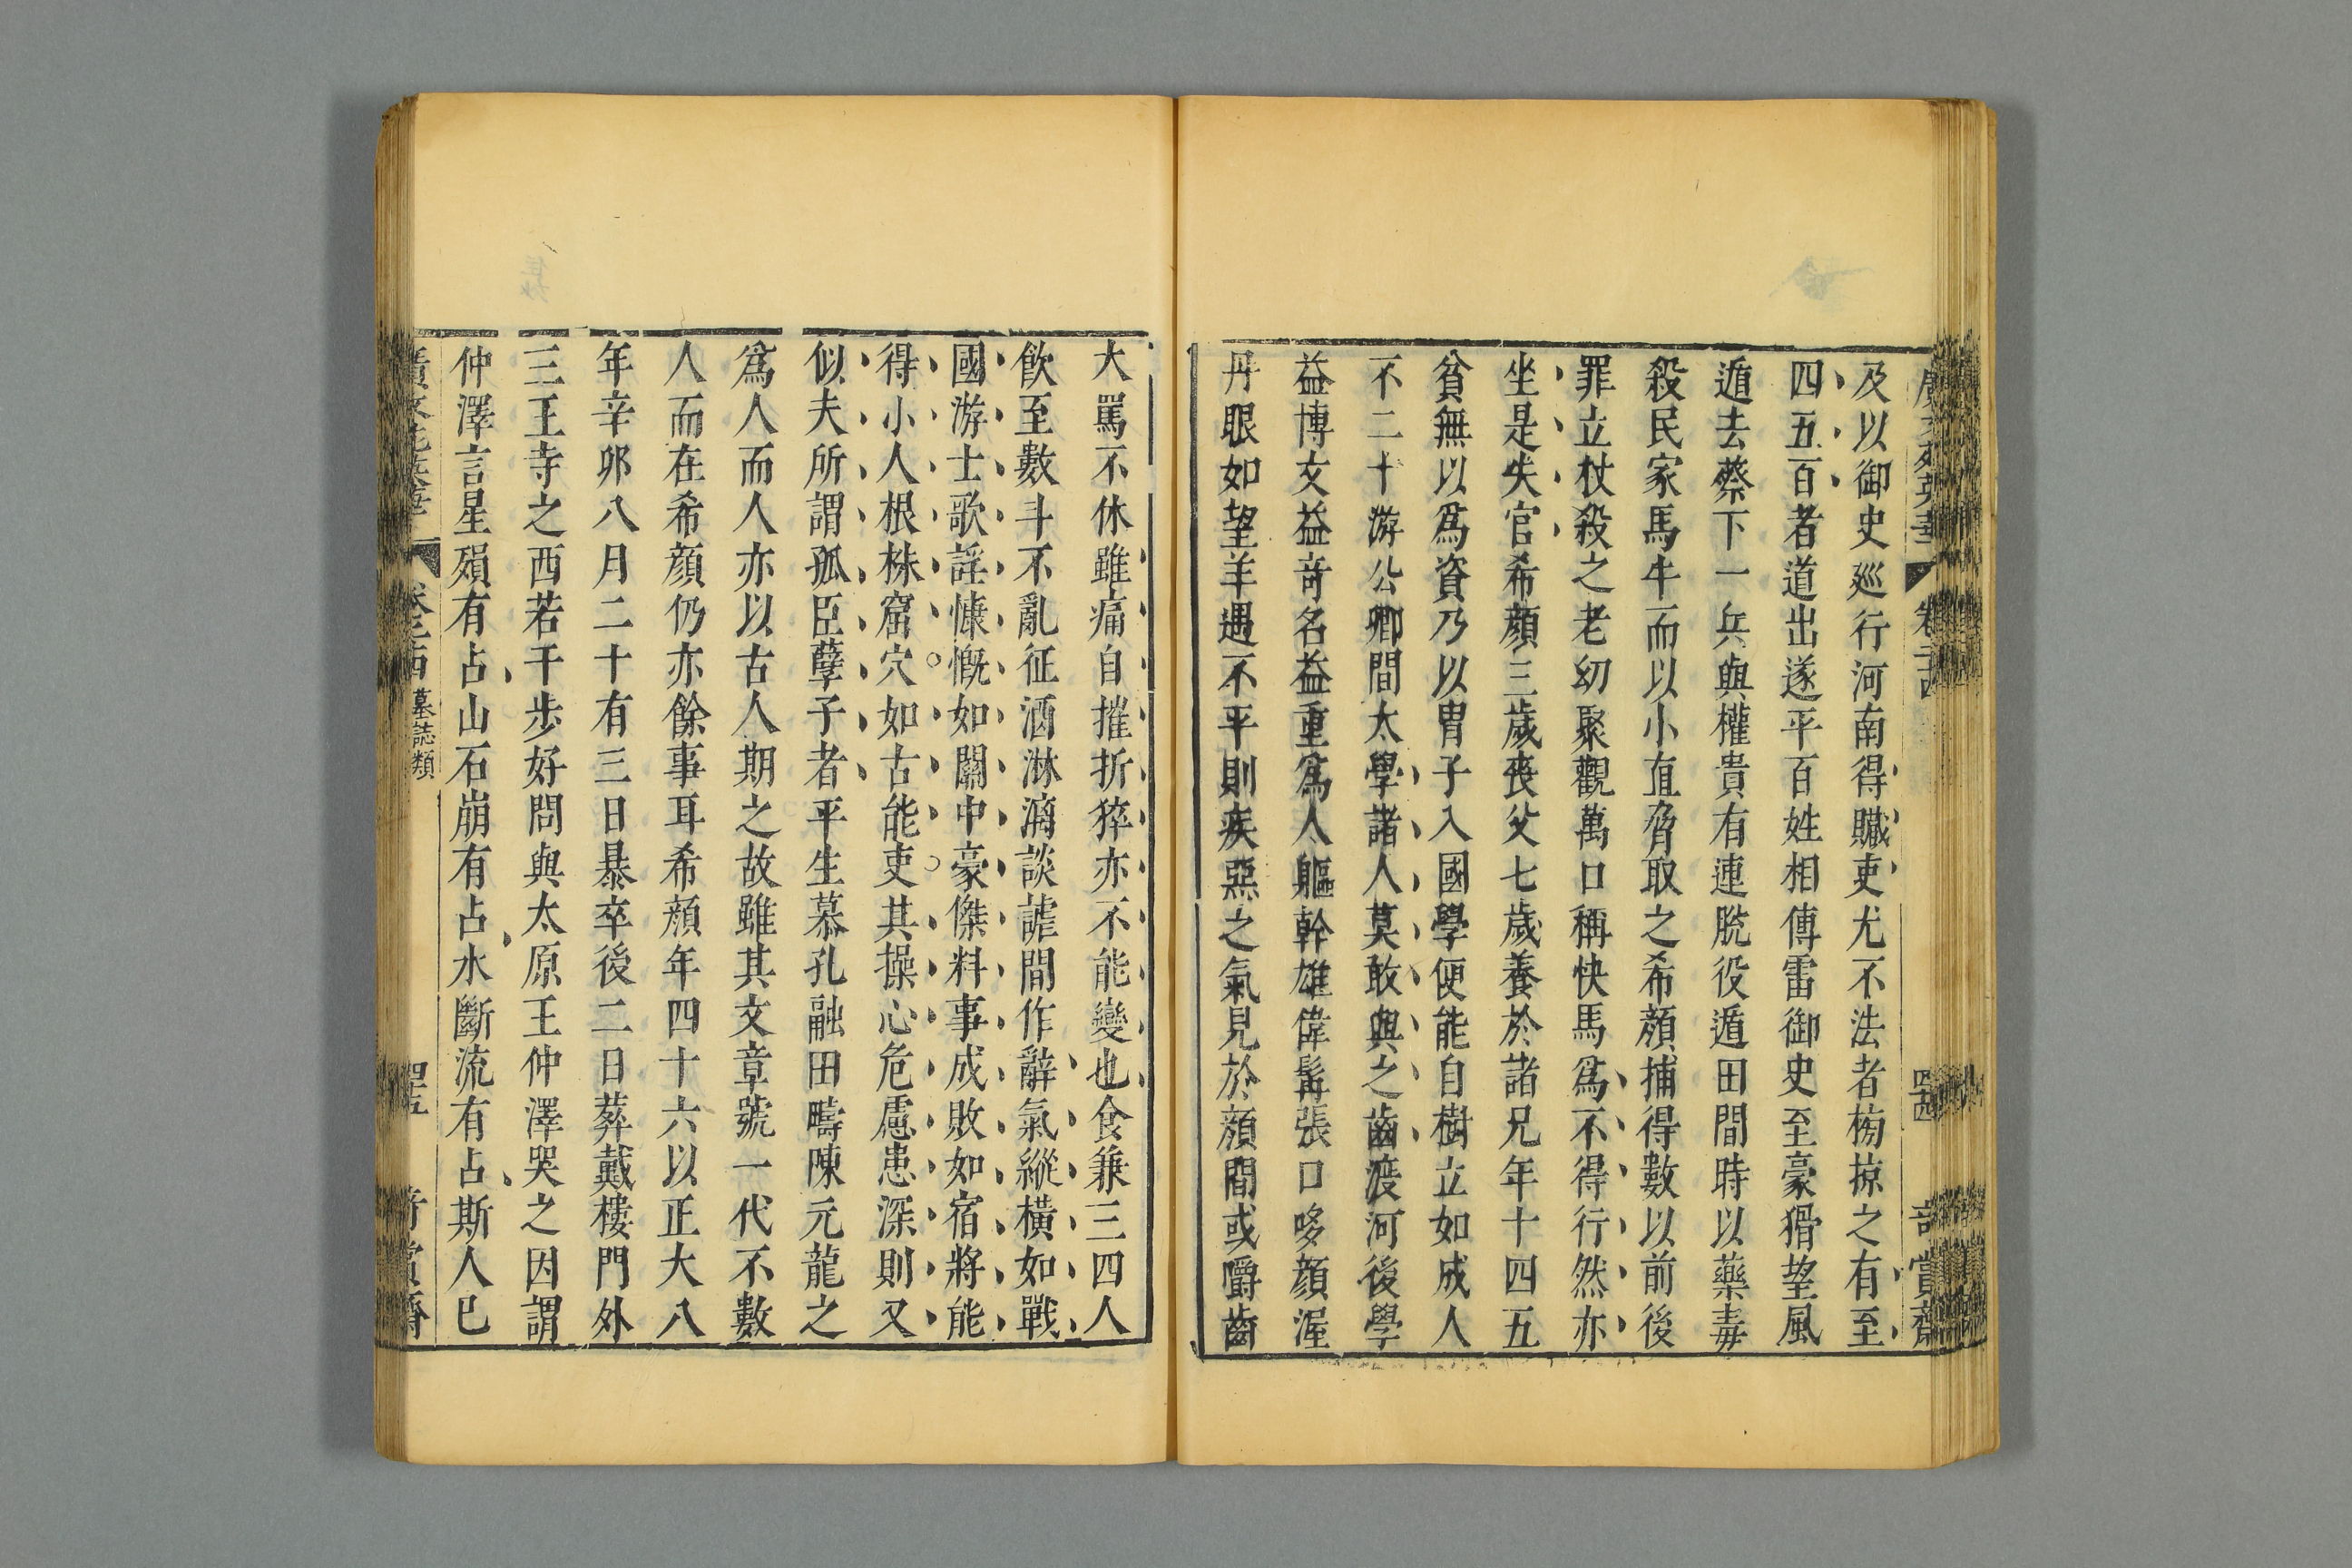 及以御史廵行河南得贜吏尤不法者榜掠之有至
四五百者道出遂平百姓相傳雷御史至豪猾望風
遁去蔡下一兵與權貴有連脫役遁田間時以藥毒
殺民家馬牛而以小直脅取之希顏捕得數以前後
罪立杖殺之老幼聚觀萬口稱快馬爲不得行然亦
坐是失官希顏三歲喪父七歲養於諸兄年十四五
貧無以爲資乃以胄子入國學便能自樹立如成人
不二十游公卿間太學諸人莫敢與之齒渡河後學
益博文益竒名益重爲人軀幹雄偉髯張口哆顏渥
丹眼如望羊遇不平則疾惡之氣見於顏間或嚼齒
大罵不休雖痛自摧折猝亦不能變也食兼三四人
飲至數斗不亂征酒淋漓談謔間作辭氣縱橫如戰
國游士歌謠慷慨如關中豪傑料事成敗如宿將能
得小人根株窟穴如古能吏其操心危慮患深則又
似夫所謂孤臣孽子者平生慕孔融田疇陳元龍之
爲人而人亦以古人期之故雖其文章號一代不數
人而在希顏仍亦餘事耳希顏年四十六以正大八
年辛卯八月二十有三日暴卒後二日葬戴樓門外
三王寺之西若干步好問與太原王仲澤哭之因謂
仲澤言星殞有占山石崩有占水斷流有占斯人已
墓誌類